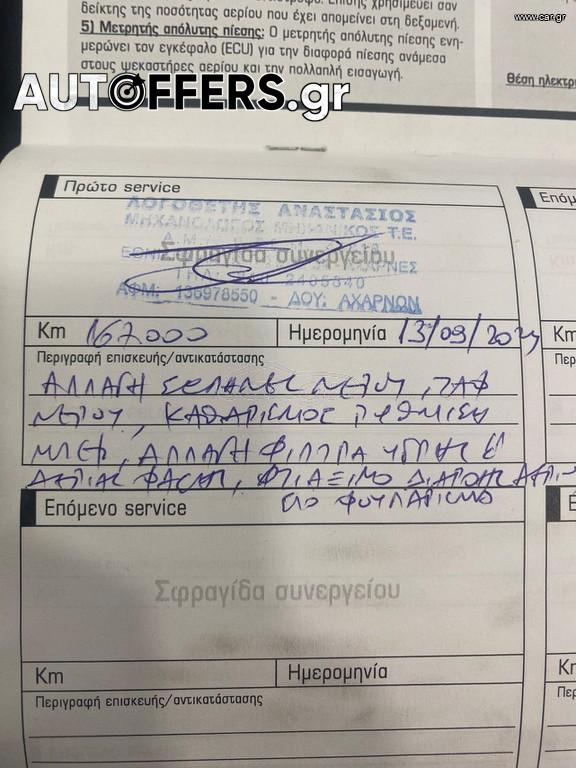 δείκτης της ποσότητας αερίου που έχει απομείνει στη δεξαμενή.
5) Μετρητής απόλυτης πίεσης: Ο μετρητής απόλυτης πίεσης ενη-
μερώνει τον εγκέφαλο (ECU) για την διαφορά πίεσης ανάμεσα
στους ψεκαστήρες αερίου και την πολλαπλή εισαγωγή.
www.car.gr
Θέση ηλεκτρι
AUTOFFERS.gr
Πρώτο service
ΛΟΓΟΘΕΤΗΣ ΑΝΑΣΤΑΣΙΟΣ
ΜΗΧΑΝΟΛΟΓΟΣ ΜΗΧΑΝΙΚΟΣ Τ.Ε.
Σφραγίδα συνεργείου
ΑΦΜ: 135978550 - ΔΟΥ: ΑΧΑΡΝΩΝ
Km 167.000 Ημερομηνία 13/09/
Περιγραφή επισκευής/αντικατάστασης
ΑΛΛΑΓΗ ΣΩΛΗΝΕΣ ΝΕΡΟΥ, ΤΑΦ
ΝΕΡΟΥ, ΚΑΘΑΡΙΣΜΟΣ ΡΥΘΜΙΣΗ
ΜΠΕΚ, ΑΛΛΑΓΗ ΦΙΛΤΡΑ ΥΓΡΗΣ &
ΑΕΡΙΑΣ ΦΑΣΗΣ, ΦΤΙΑΞΙΜΟ ΔΙΑΡΟΗΣ
ΣΤΟ ΦΟΥΛΑΡΙΣΜΑ
Επόμενο service
Σφραγίδα συνεργείου
Km Ημερομηνία
Περιγραφή επισκευής/αντικατάστασης